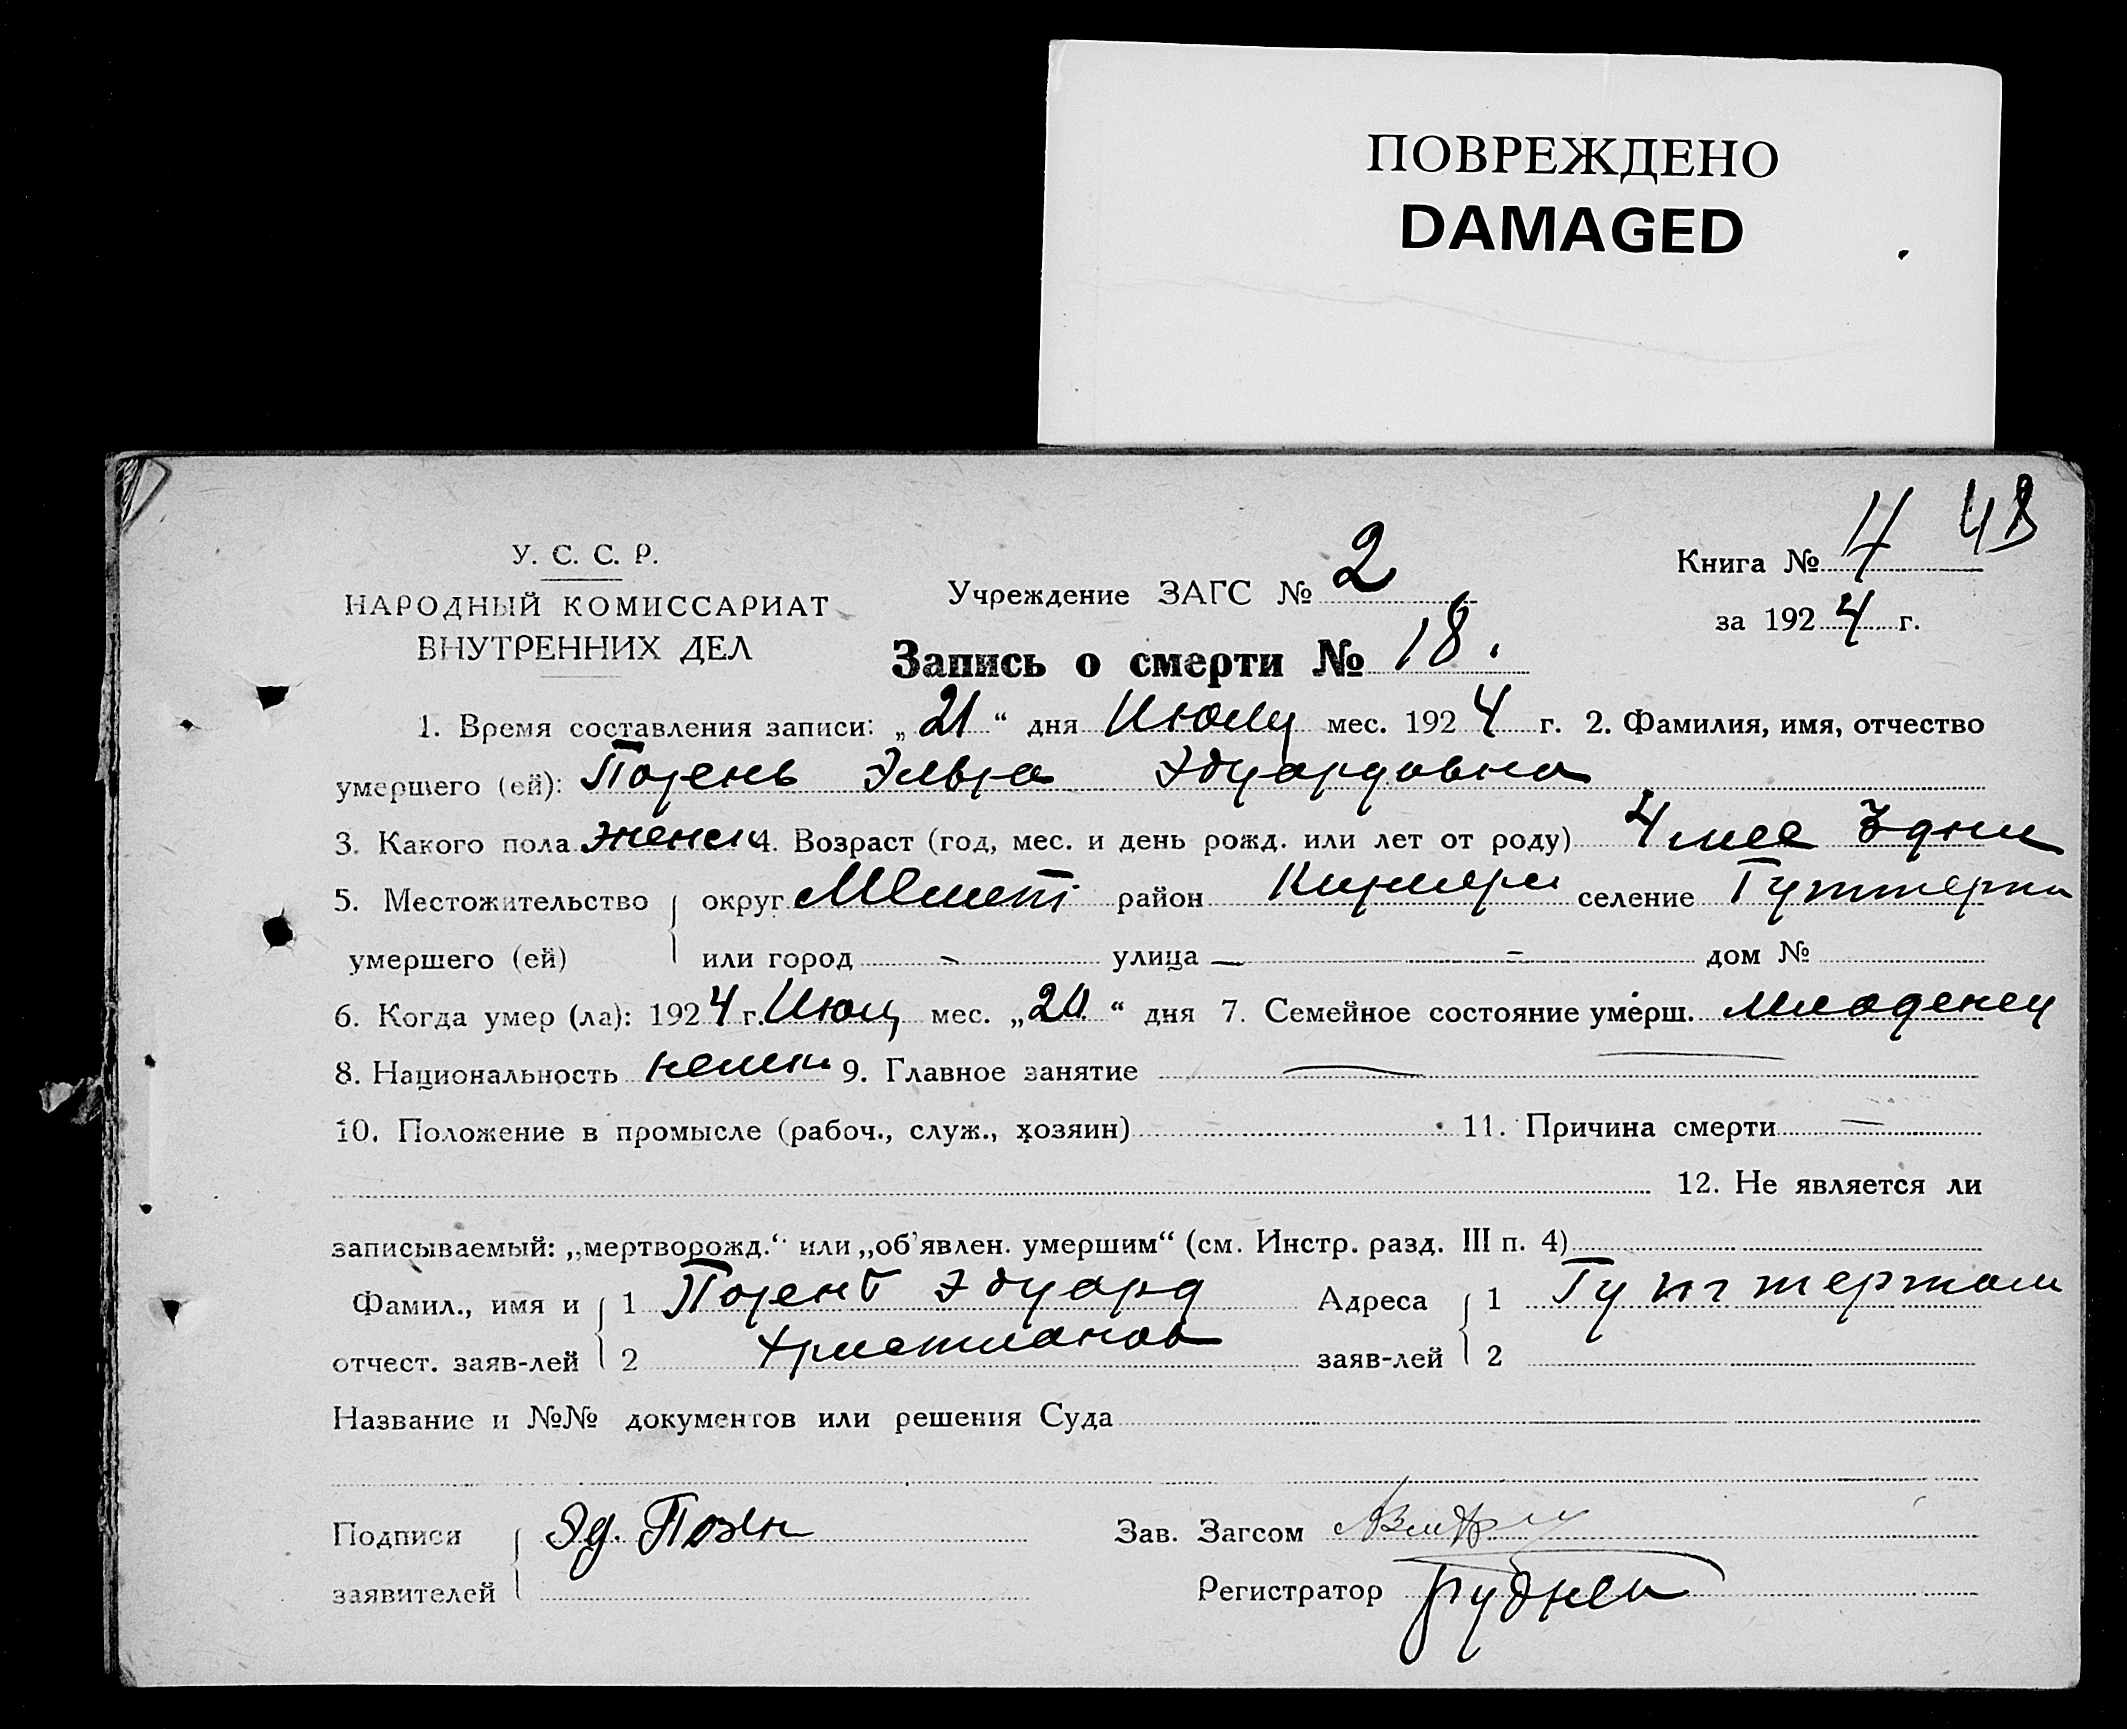 ПОВРЕЖДЕНО
DAMAGED
4В
У. С. С. Р.
НАРОДНЫЙ КОМИССАРИАТ
ВНУТРЕННИХ ДЕЛ
Учреждение ЗАГС № 2
Книга №
за 1924 г.
Запись о смерти № 18.
1. Время составления записи: „21“ дня Июля мес. 1924 г. 2. Фамилия, имя, отчество
умершего (ей): Эдуардовна
3. Какого пола женск 4. Возраст (год, мес. и день рожд. или лет от роду) 4 мес дни
5. Местожительство округ Мелит район селение
умершего (ей) или город - улица — - дом №
6. Когда умер (ла): 1924 г. мес. „20“ дня 7. Семейное состояние умерш. младенец
8. Национальность немк 9. Главное занятие —
10. Положение в промысле (рабоч., служ., хозяин) 11. Причина смерти —
12. Не является ли
записываемый: „мертворожд.“ или „об'явлен. умершим“ (см. Инстр. разд. III п. 4)
Фамил., имя и 1 Эдуард Адреса 1
отчест. заяв-лей 2 Христианов заяв-лей 2
Название и №№ документов или решения Суда
Подписи Эд. Позен Зав. Загсом
заявителей Регистратор